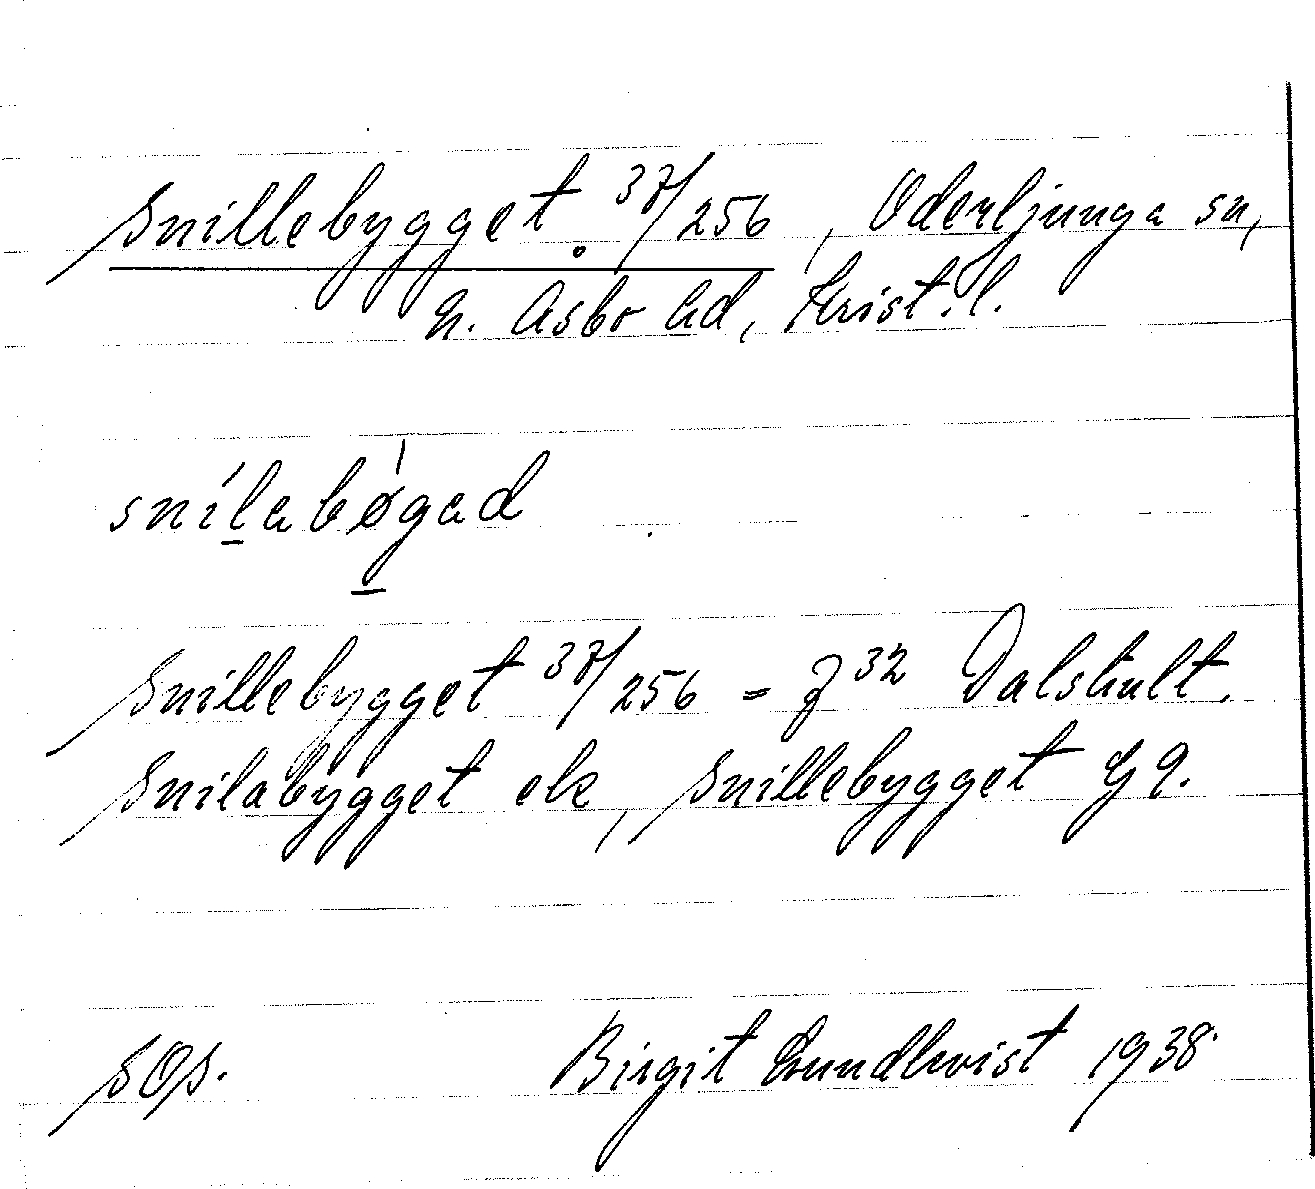 Snillebygget 37/256, Oderljunga sn,
N. Åsbo hd, Krist. l.
snílabøgad
Snillebygget 37/256 = J32 Dalshult.
Snilabygget ek, Snillebygget G9.
SOS. Birgit Lundkvist 1938.